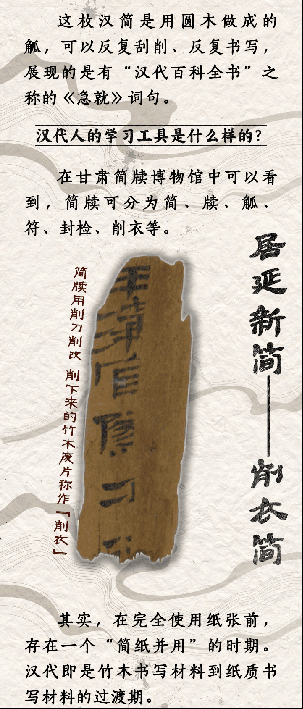 这枚汉简是用圆木做成的
觚，可以反复刮削、反复书写，
展现的是有“汉代百科全书”之
称的《急就》词句。
汉代人的学习工具是什么样的？
在甘肃简牍博物馆中可以看
到，简牍可分为简、牍、觚、
符、封检、削衣等。
居延新简——削衣简
简牍用削刀削改 削下来的竹木废片称作「削衣」
其实，在完全使用纸张前，
存在一个“简纸并用”的时期。
汉代即是竹木书写材料到纸质书
写材料的过渡期。